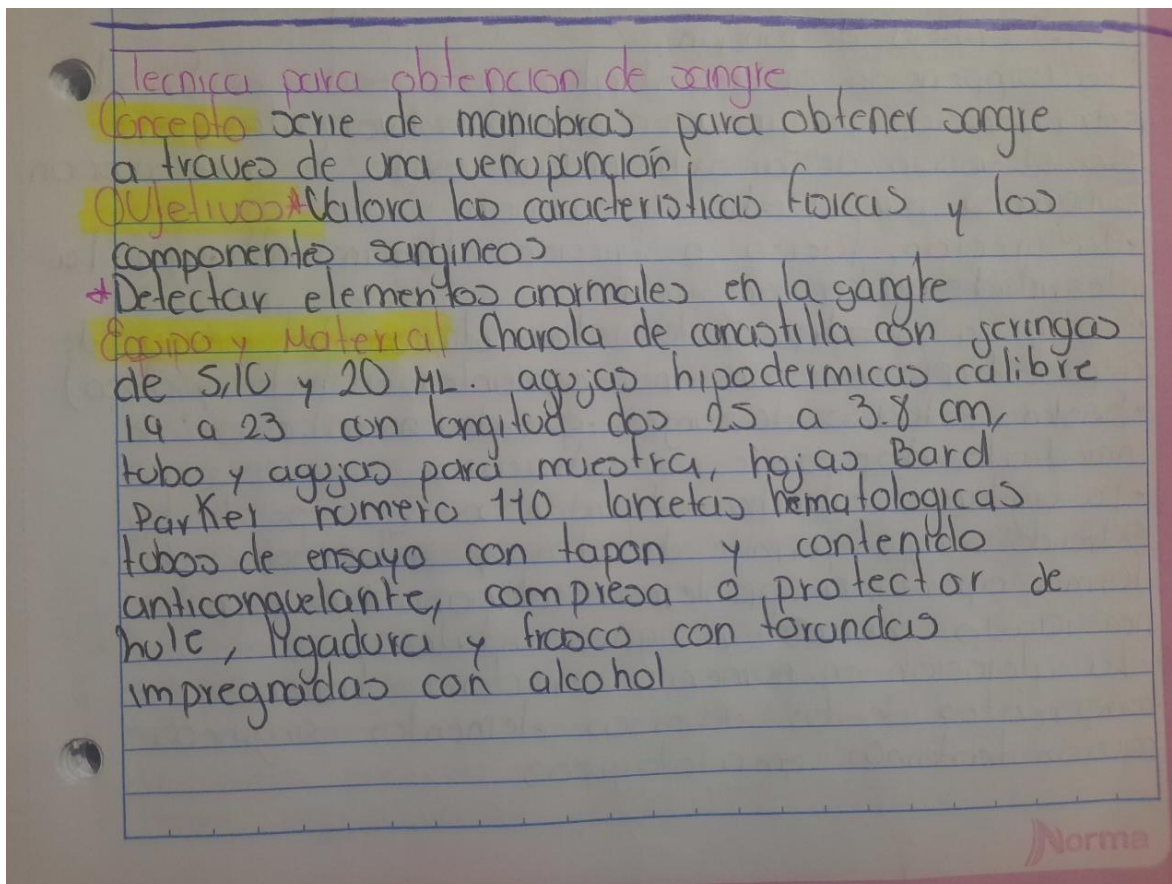 Tecnica para obtencion de sangre
Concepto serie de maniobras para obtener sangre
a traves de una venopunción
Objetivos *Valora las caracteristicas fisicas y los
componentes sangineos
*Detectar elementos anormales en la gangre
Equipo y Material Charola de canastilla con jeringas
de 5,10 y 20 ML. agujas hipodermicas calibre
19 a 23 con longitud dos 25 a 3.8 cm,
tubo y agujas para muestra, hojas Bard
Parker numero 110 lancetas hematologicas
tubos de ensayo con tapon y contenido
anticonguelante, compresa o protector de
hule, ligadura y frasco con torundas
impregnadas con alcohol
Norma